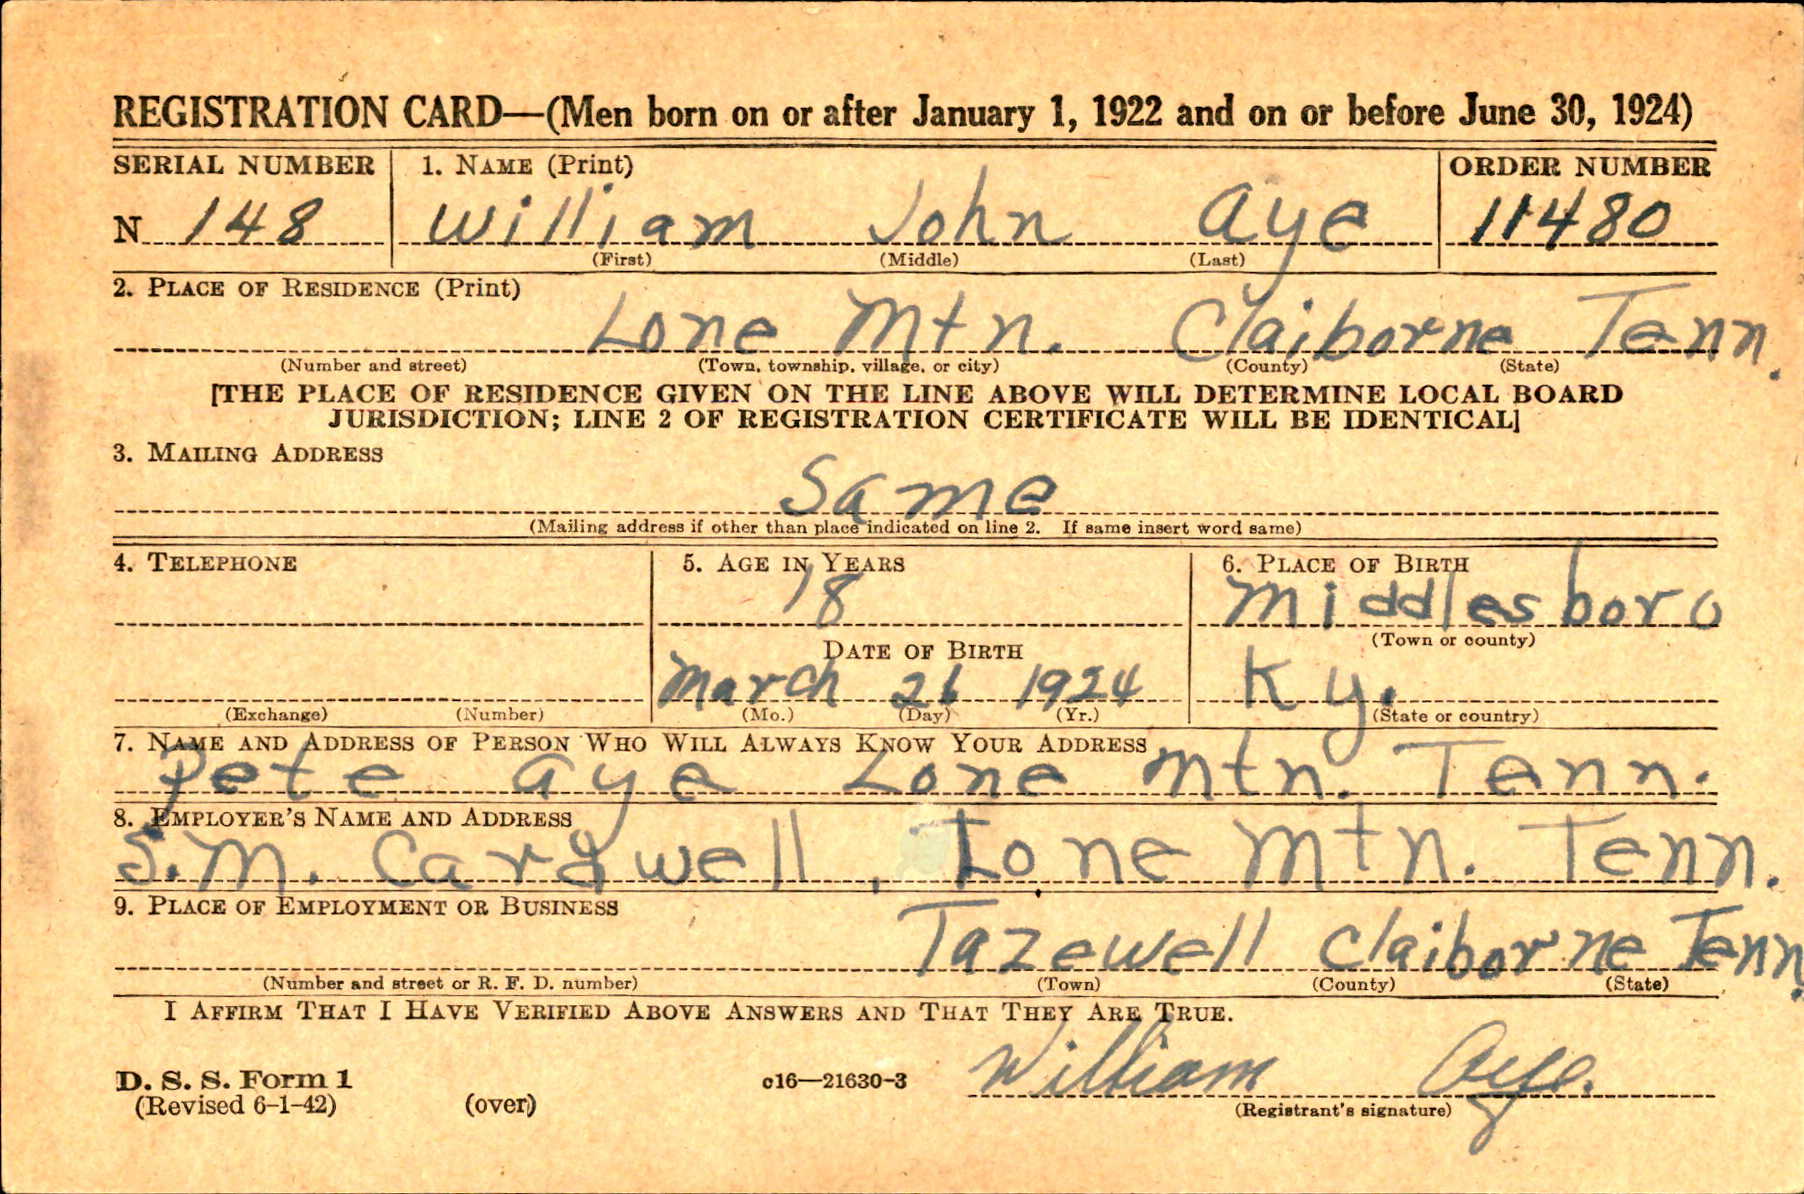 REGISTRATION CARD—(Men born on or after January 1, 1922 and on or before June 30, 1924)
SERIAL NUMBER 1. NAME (Print) ORDER NUMBER
N 148 William John Aye 11480
(First) (Middle) (Last)
2. PLACE OF RESIDENCE (Print)
Lone Mtn. Claiborne Tenn.
(Number and street) (Town, township, village, or city) (County) (State)
[THE PLACE OF RESIDENCE GIVEN ON THE LINE ABOVE WILL DETERMINE LOCAL BOARD
JURISDICTION; LINE 2 OF REGISTRATION CERTIFICATE WILL BE IDENTICAL]
3. MAILING ADDRESS
Same
(Mailing address if other than place indicated on line 2. If same insert word same)
4. TELEPHONE 5. AGE IN YEARS 6. PLACE OF BIRTH
18 Middlesboro
(Town or county)
DATE OF BIRTH
March 26 1924 Ky.
(Exchange) (Number) (Mo.) (Day) (Yr.) (State or country)
7. NAME AND ADDRESS OF PERSON WHO WILL ALWAYS KNOW YOUR ADDRESS
Pete Aye Lone Mtn. Tenn.
8. EMPLOYER'S NAME AND ADDRESS
S.M. Cardwell, Lone Mtn. Tenn.
9. PLACE OF EMPLOYMENT OR BUSINESS
Tazewell Claiborne Tenn.
(Number and street or R. F. D. number) (Town) (County) (State)
I AFFIRM THAT I HAVE VERIFIED ABOVE ANSWERS AND THAT THEY ARE TRUE.
William Aye.
D. S. S. Form 1 c16—21630-3
(Revised 6-1-42) (over) (Registrant's signature)